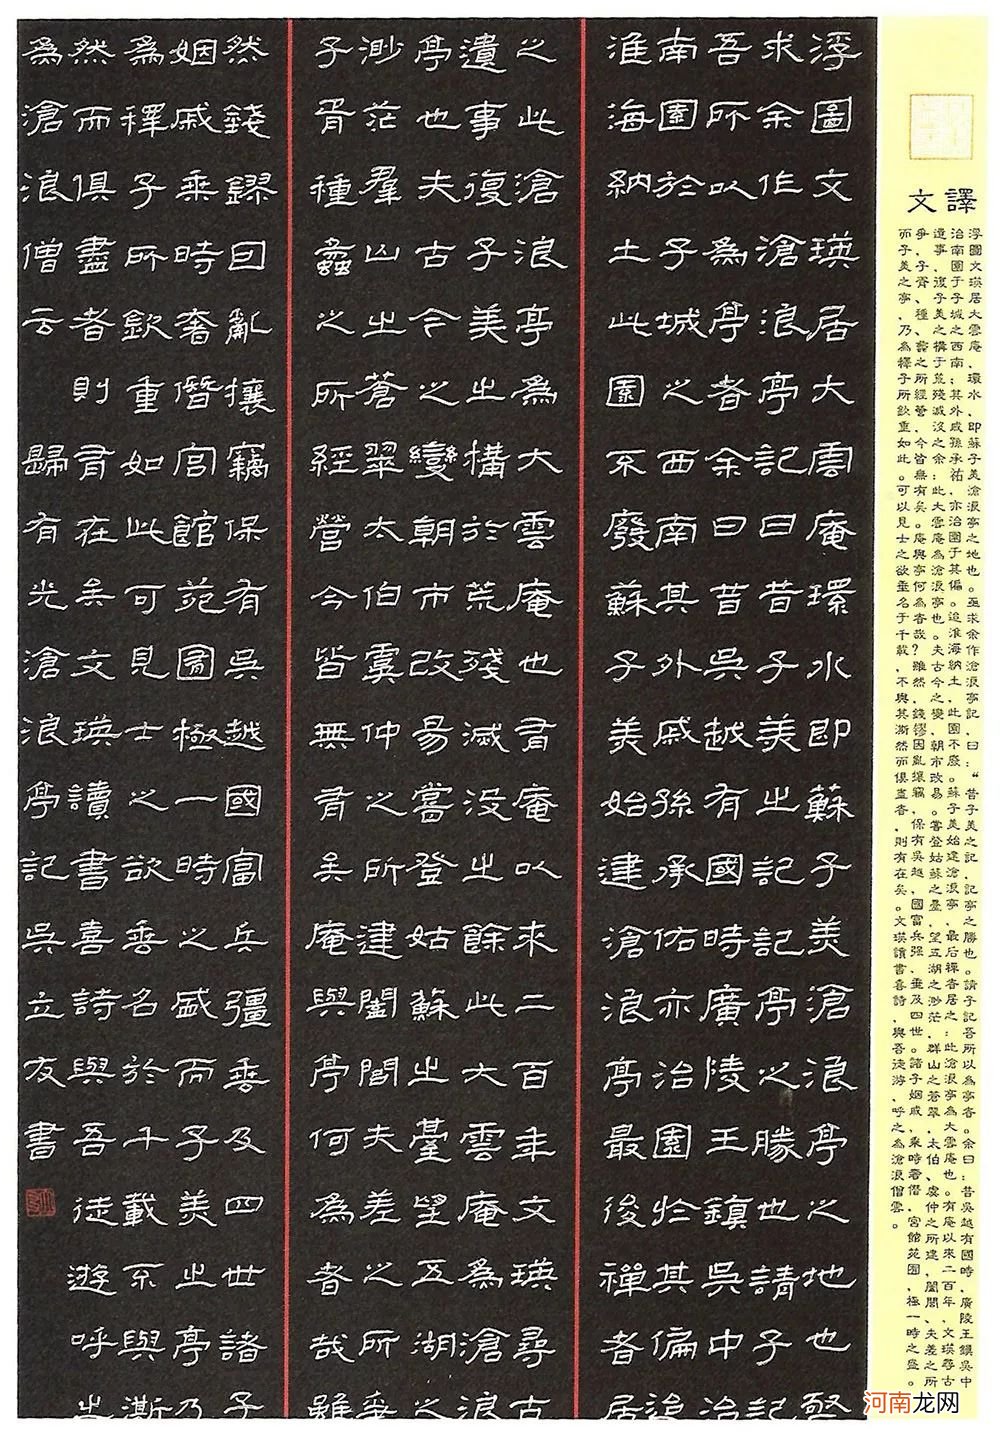 浮圖文瑛居大雲庵環水即蘇子美滄浪亭之地也亟
求余作滄浪亭記曰昔子美之記記亭之勝也請子記
吾所以為亭者余曰昔吳越有國時廣陵王鎮吳中治
南園於子城之西南其外戚孫承佑亦治園於其偏迨
淮海納土此園不廢蘇子美始建滄浪亭最後禪者居
之此滄浪亭為大雲庵也有庵以來二百年文瑛尋古
遺事復子美之構於荒殘滅沒之餘此大雲庵為滄浪
亭也夫古今之變朝市改易嘗登姑蘇之臺望五湖之
渺茫羣山之蒼翠太伯虞仲之所建闔閭夫差之所爭
子胥種蠡之所經營今皆無有矣庵與亭何為者哉雖
然錢鏐因亂攘竊保有吳越國富兵彊垂及四世諸子
姻戚乘時奢僭宮館苑囿極一時之盛而子美之亭乃
為釋子所欽重如此可見士之欲垂名於千載不與澌
然而俱盡者則有在矣文瑛讀書喜詩與吾徒遊呼之
為滄浪僧云 歸有光滄浪亭記吳立友書
譯文
浮圖文瑛居大雲庵，環水，即蘇子美滄浪亭之地也。亟求余作滄浪亭記，曰：“昔子美之記，記亭之勝也。請子記吾所以為亭者。余曰：昔吳越有國時，廣陵王鎮吳中，
治南園于子城之西南；其外戚孫承祐，亦治園于其偏。迨淮海納土，此園不廢。蘇子美始建滄浪亭，最后禪者居之：此滄浪亭為大雲庵也。有庵以來二百年，文瑛尋古
遺事，復子美之構于荒殘滅沒之余：此大雲庵為滄浪亭也。夫古今之變，朝市改易。嘗登姑蘇之臺，望五湖之渺茫，群山之蒼翠，太伯、虞仲之所建，闔閭、夫差之所
爭，子胥、種、蠡之所經營，今皆無有矣。庵與亭何為者哉？雖然，錢鏐因亂攘竊，保有吳越，國富兵强，垂及四世。諸子姻戚，乘時奢僭，宮館苑囿，極一時之盛。
而子美之亭，乃為釋子所欽重如此。可以見士之欲垂名于千載，不與其澌然而俱盡者，則有在矣。文瑛讀書喜詩，與吾徒游，呼之為滄浪僧雲。
河南龙网